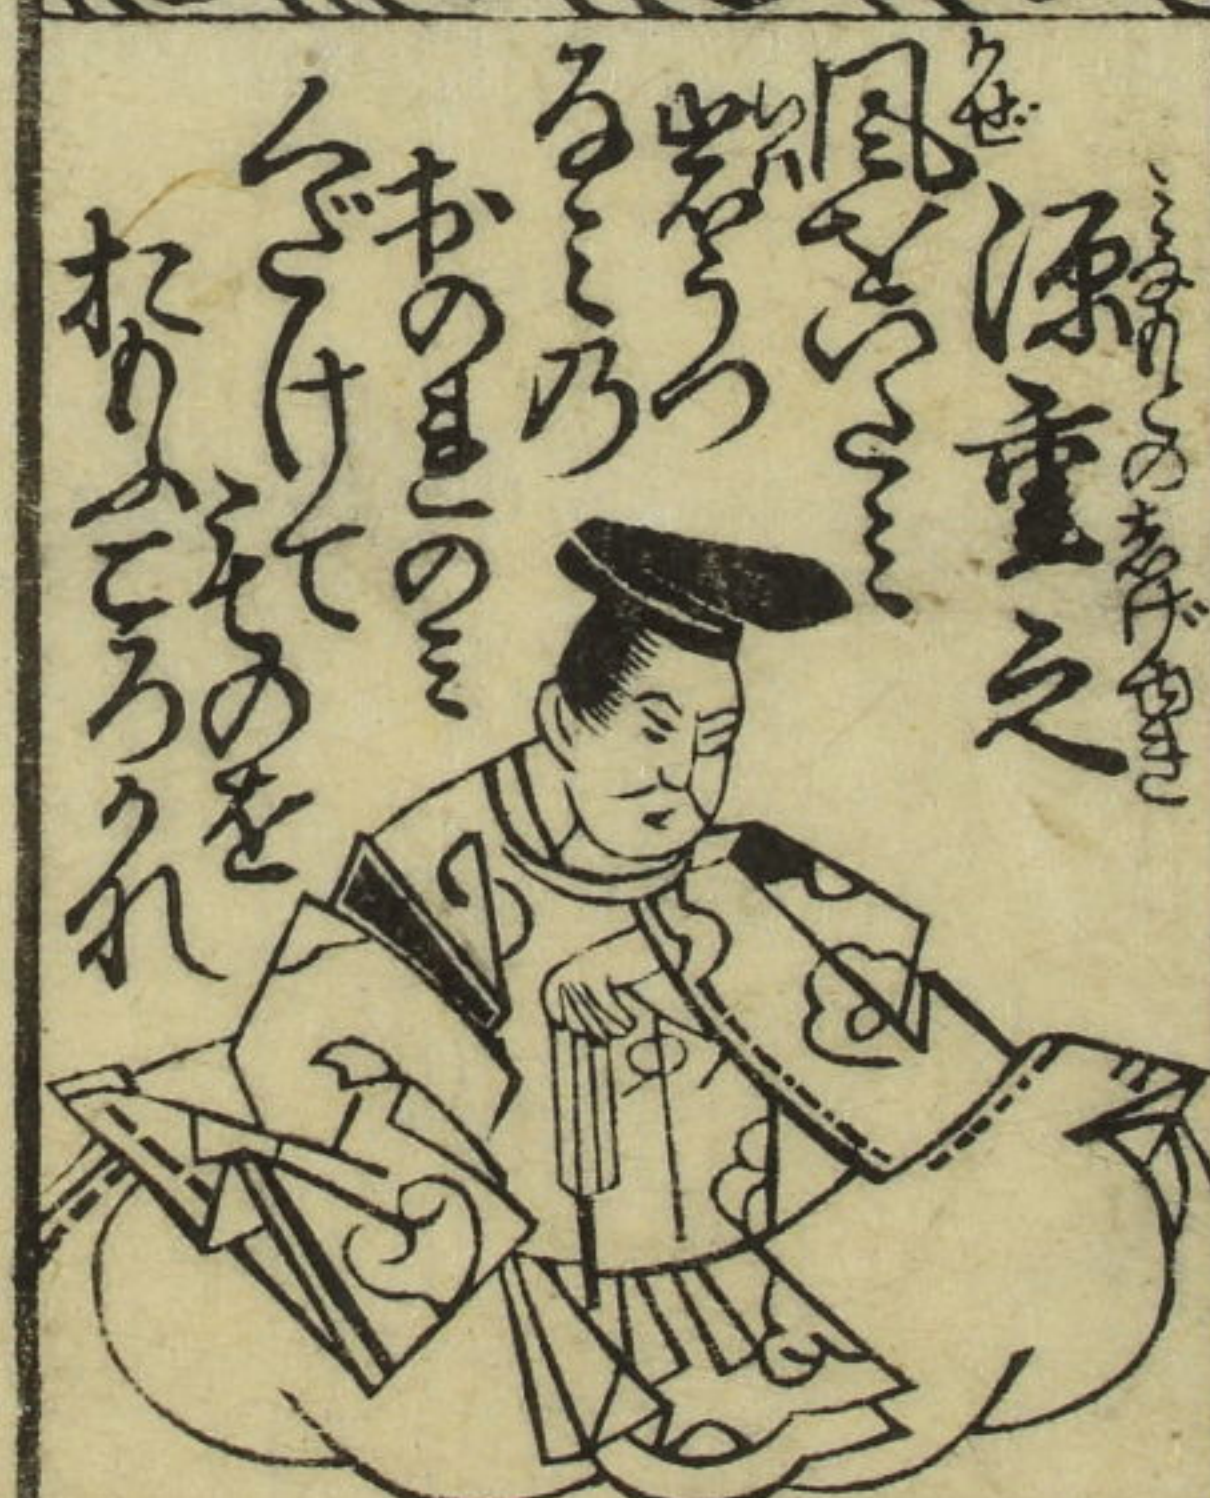 ミなもとの志げゆき
源重之
かぜ
風をいたミ
いは
岩うつ
なミ乃
おのれのミ
くだけて
ものを
おもふころかな